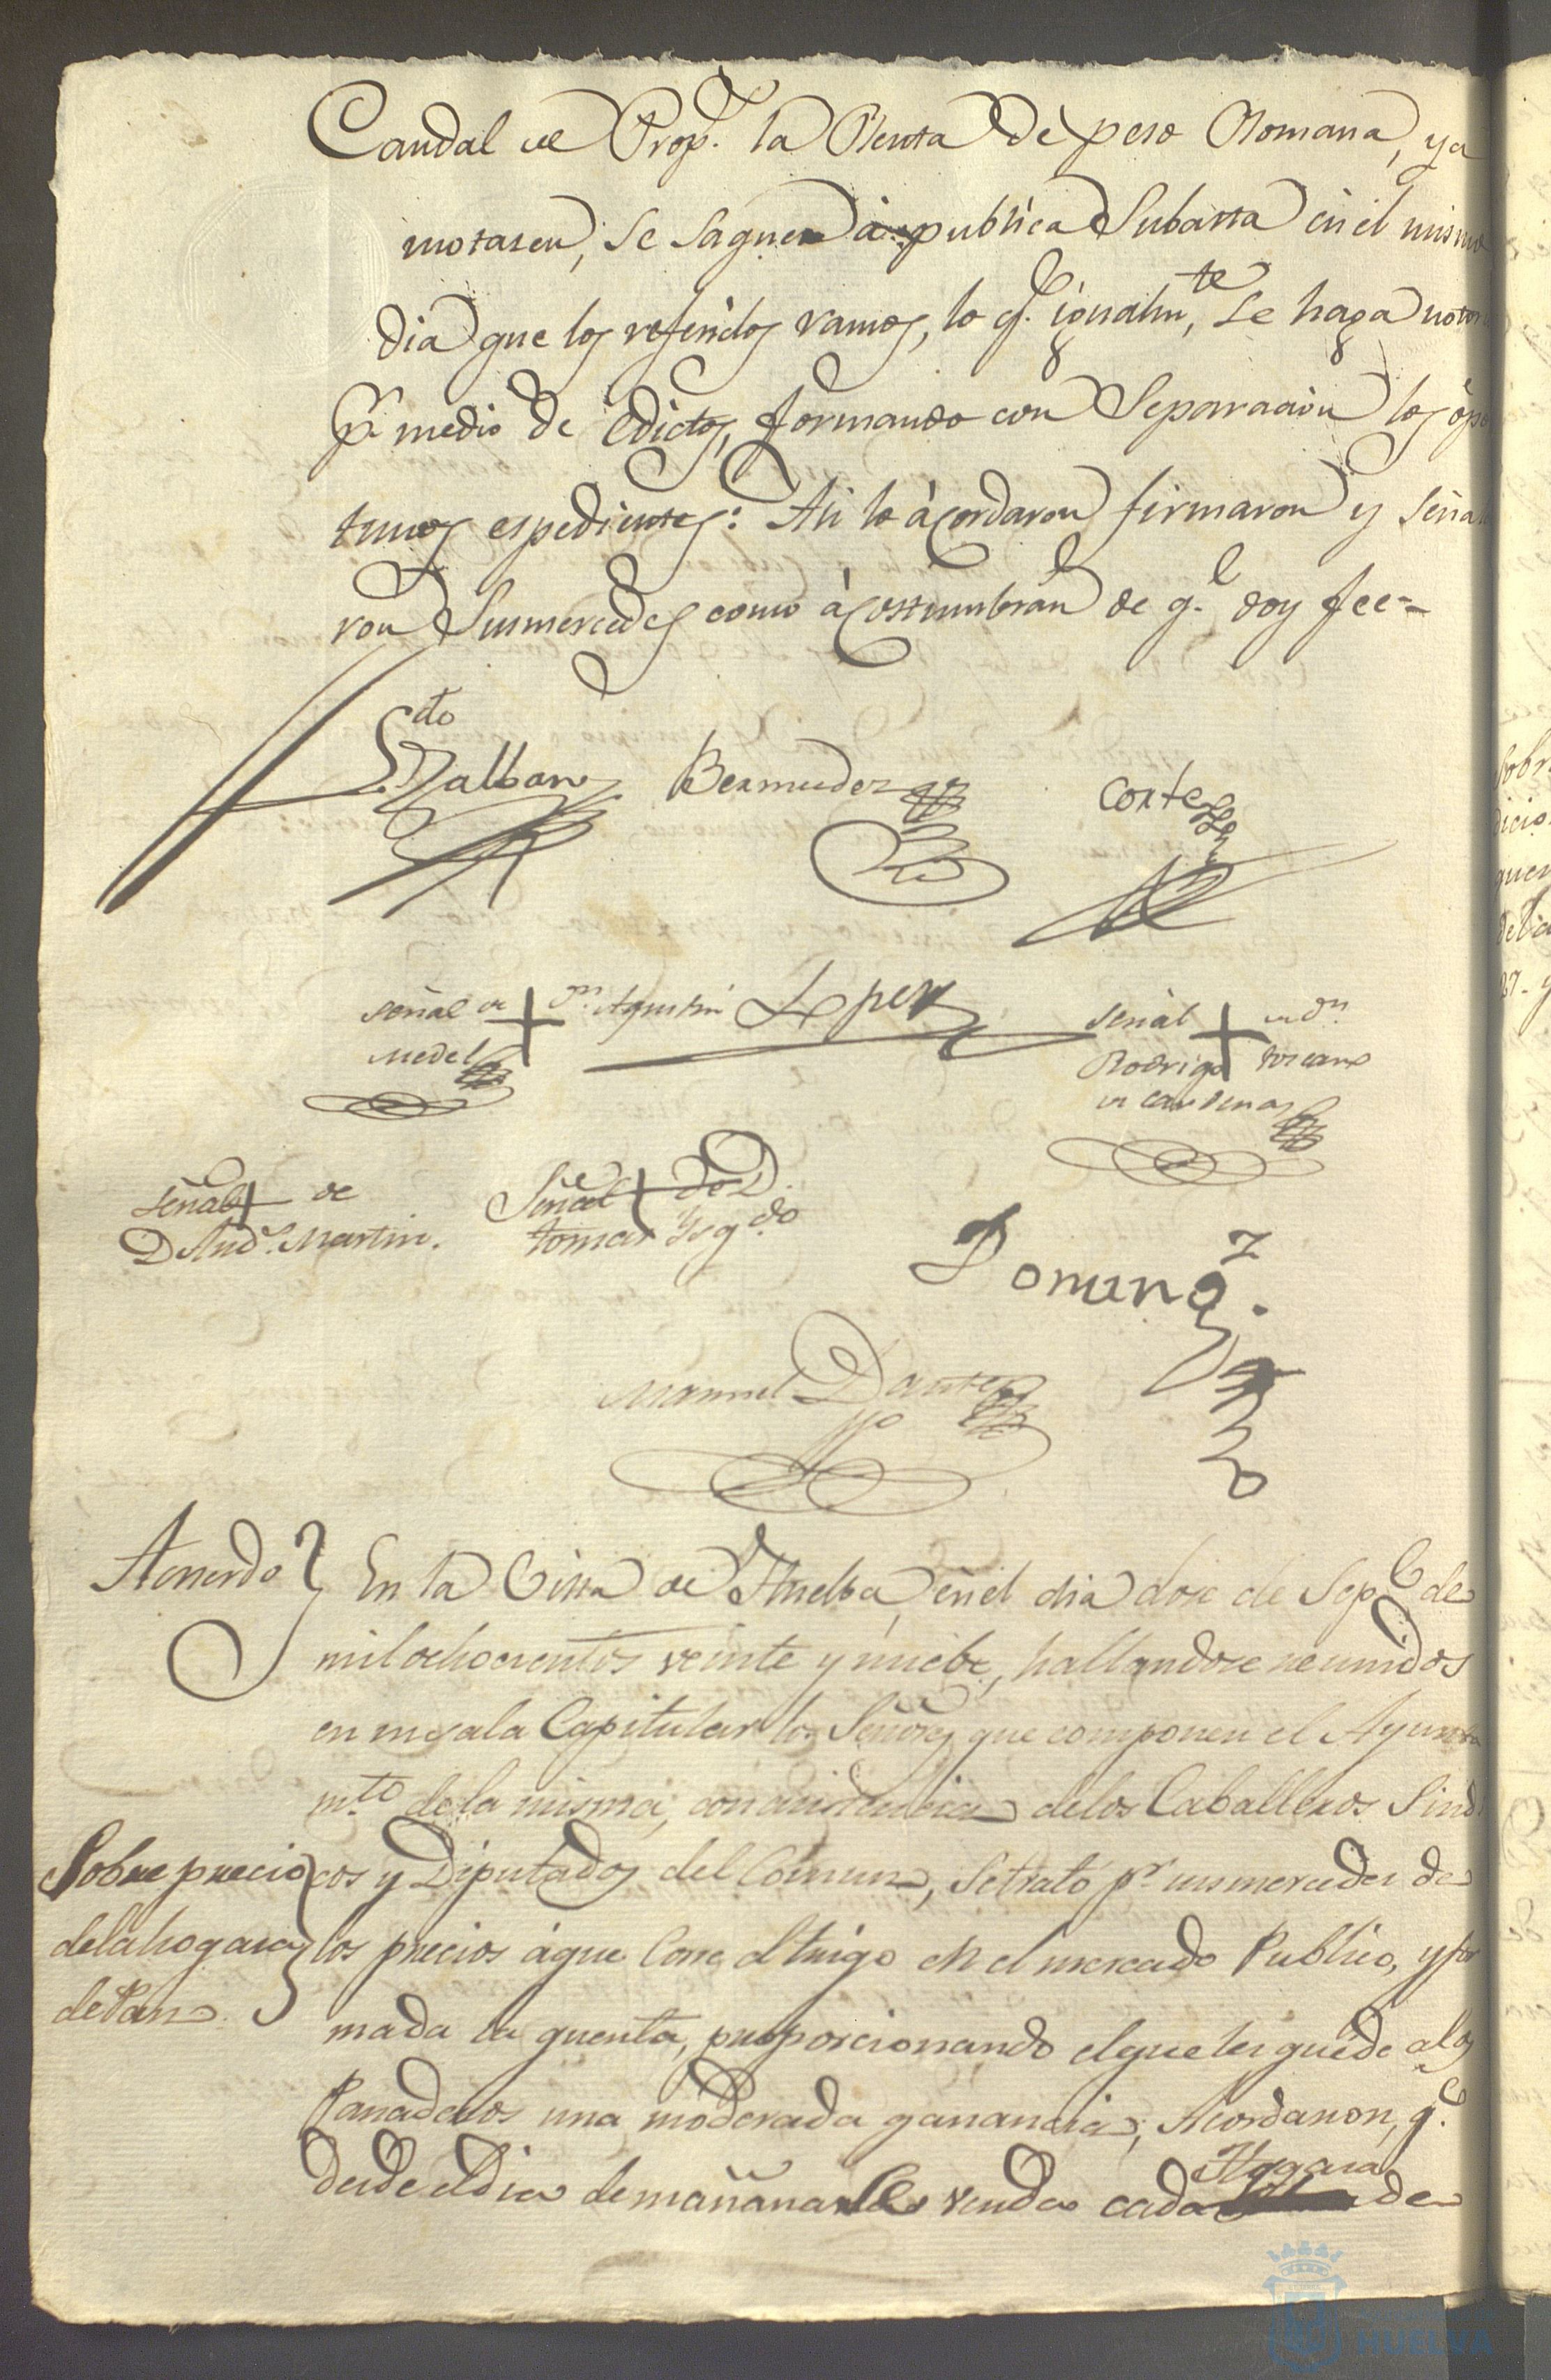 Caudal de Prop.s la Renta de peso Romana, y a
motasen, se saquen à publica Subasta en el mismo
dia que los referidos ramos, lo q.e igualm.te se haga notor
p.r medio de edictos, formando con Separacion los opor
tunos espedientes: Asi lo acordaron firmaron y señala
ron Susmercedes como acostumbran de q.e doy fee=
Bermudez
Cortes
señal de + Dn. Agustin
Medel
Lopez
señal + de dn
Rodrigo toscano
de cardenas
señal + de
D And.s Martin.
Señal + de D.
tomas Ysq.do
Doming.z
Manuel Dante
Acuerdo
En la Villa de Huelba, en el dia doce de Sep.e de
mil ochocientos veinte y nuebe, hallandose reunidos
en su sala Capitular los Señores que componen el Ayunta
m.to de la misma, con asistencia de los Caballeros Sindi
cos y Diputados del Comun, se trató p.r sus mercedes de
los precios á que Corre el trigo en el mercado Publico, y for
mada la quenta, proporcionando el que les quede a los
Panaderos una moderada ganancia; Acordaron, q.e
desde el dia de mañana se venda cada Hogaza de
Sobre precio
de la hogaza
de Pan.
HUELVA